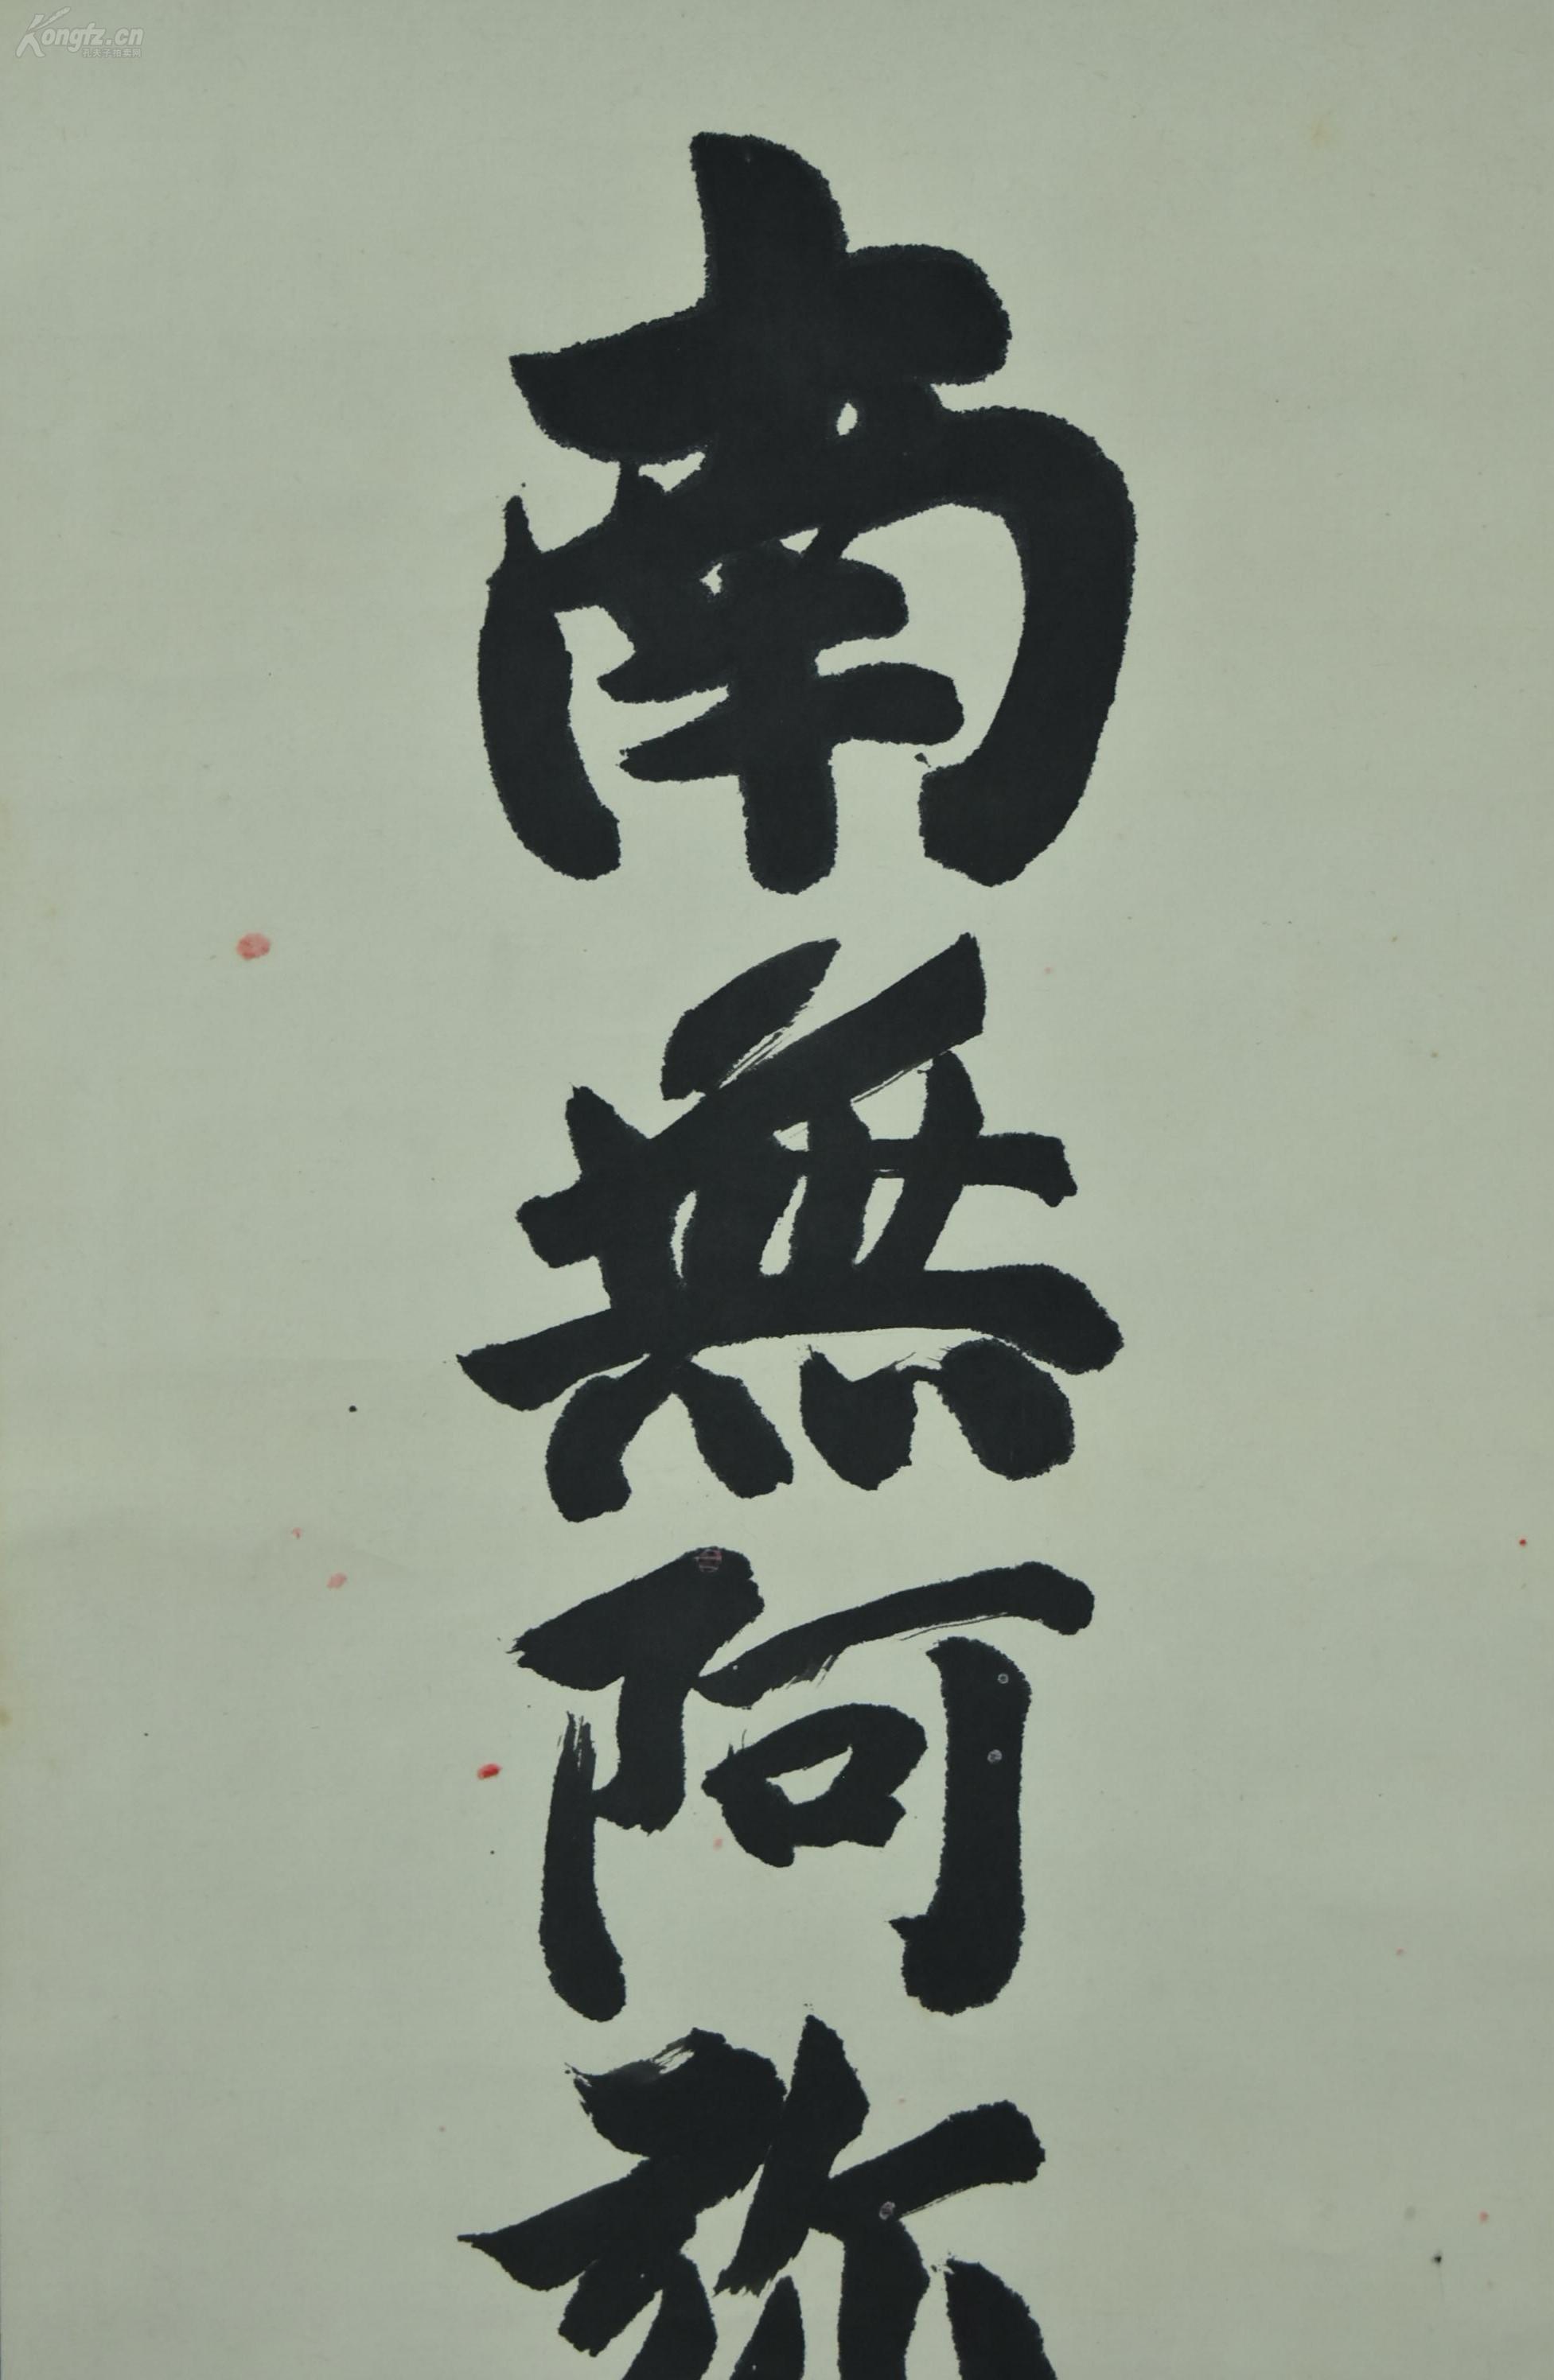 Kongfz.cn
孔夫子拍卖网
南無阿弥